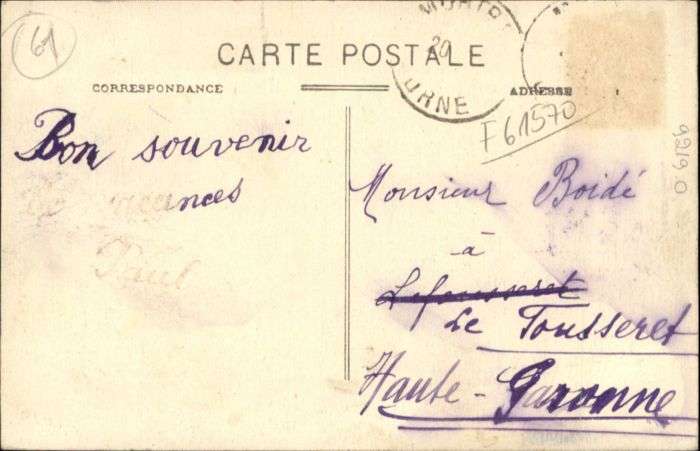 61
CARTE POSTALE
CORRESPONDANCE
ADRESSE
20
ORNE
F61570
9219 0
Bon souvenir
de vacances
Paul
Monsieur Boidé
à
Lefousseret
Le Fousseret
Haute-Garonne